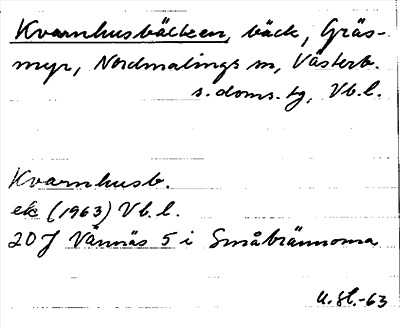 Kvarnhusbäcken, bäck, Gräs-
myr, Nordmalings sn, Västerb.
s. doms. tg, Vb. l.
Kvarnhusb.
ek (1963) Vb. l.
20J Vännäs 5 i Småbrännorna
U. Sl.-63